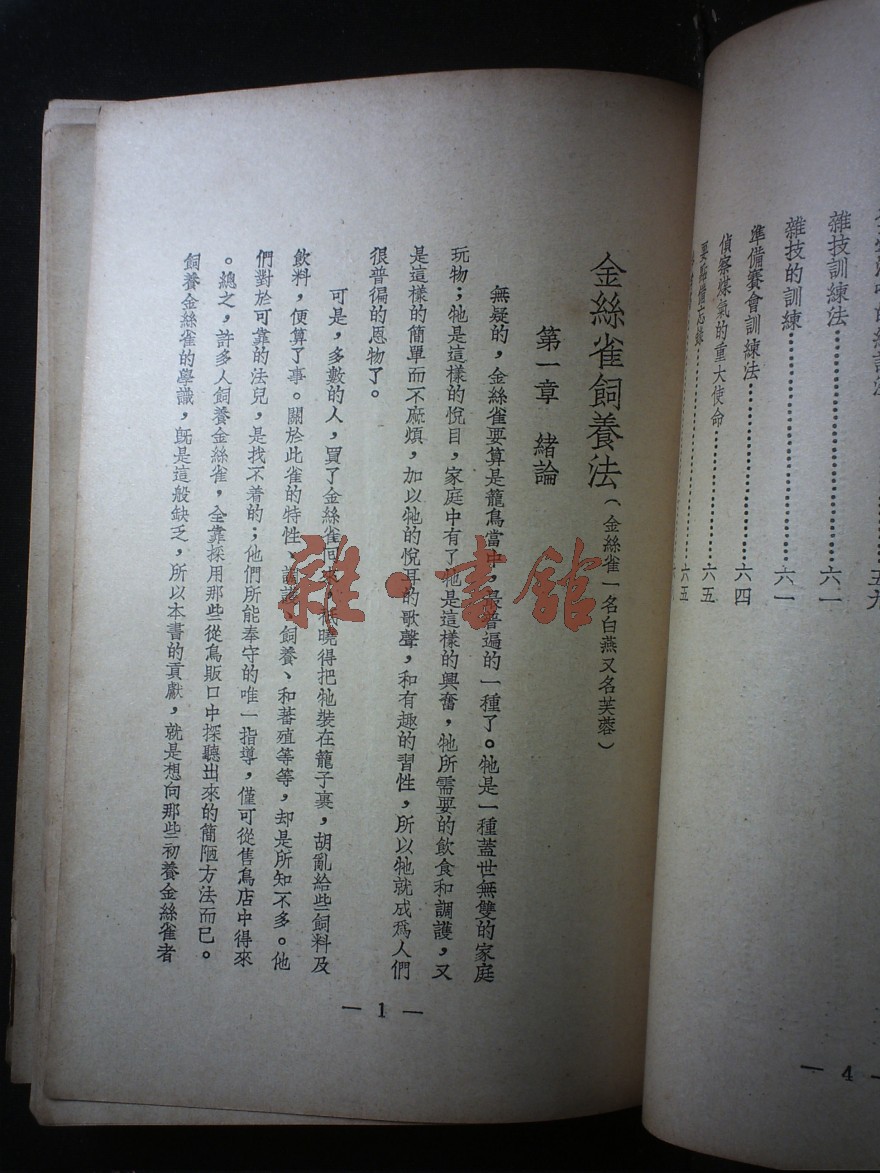 雜技訓練法⋯⋯⋯⋯六一
雜技的訓練⋯⋯⋯⋯六一
準備賽會訓練法⋯⋯⋯⋯六四
偵察煤氣的重大使命⋯⋯⋯⋯六五
要點備忘錄⋯⋯⋯⋯六五
— 4 —
金絲雀飼養法(金絲雀一名白燕又名芙蓉)
第一章　緒論
無疑的,金絲雀要算是籠鳥當中,最普遍的一種了。牠是一種蓋世無雙的家庭
玩物;牠是這樣的悅目,家庭中有了牠是這樣的興奮,牠所需要的飲食和調護,又
是這樣的簡單而不麻煩,加以牠的悅耳的歌聲,和有趣的習性,所以牠就成爲人們
很普徧的恩物了。
可是,多數的人,買了金絲雀回來,祇曉得把牠裝在籠子裏,胡亂給些飼料及
飲料,便算了事。關於此雀的特性、調護、飼養、和蕃殖等等,却是所知不多。他
們對於可靠的法兒,是找不着的;他們所能奉守的唯一指導,僅可從售鳥店中得來
。總之,許多人飼養金絲雀,全靠採用那些從鳥販口中探聽出來的簡陋方法而已。
飼養金絲雀的學識,旣是這般缺乏,所以本書的貢獻,就是想向那些初養金絲雀者
— 1 —
雜·書館